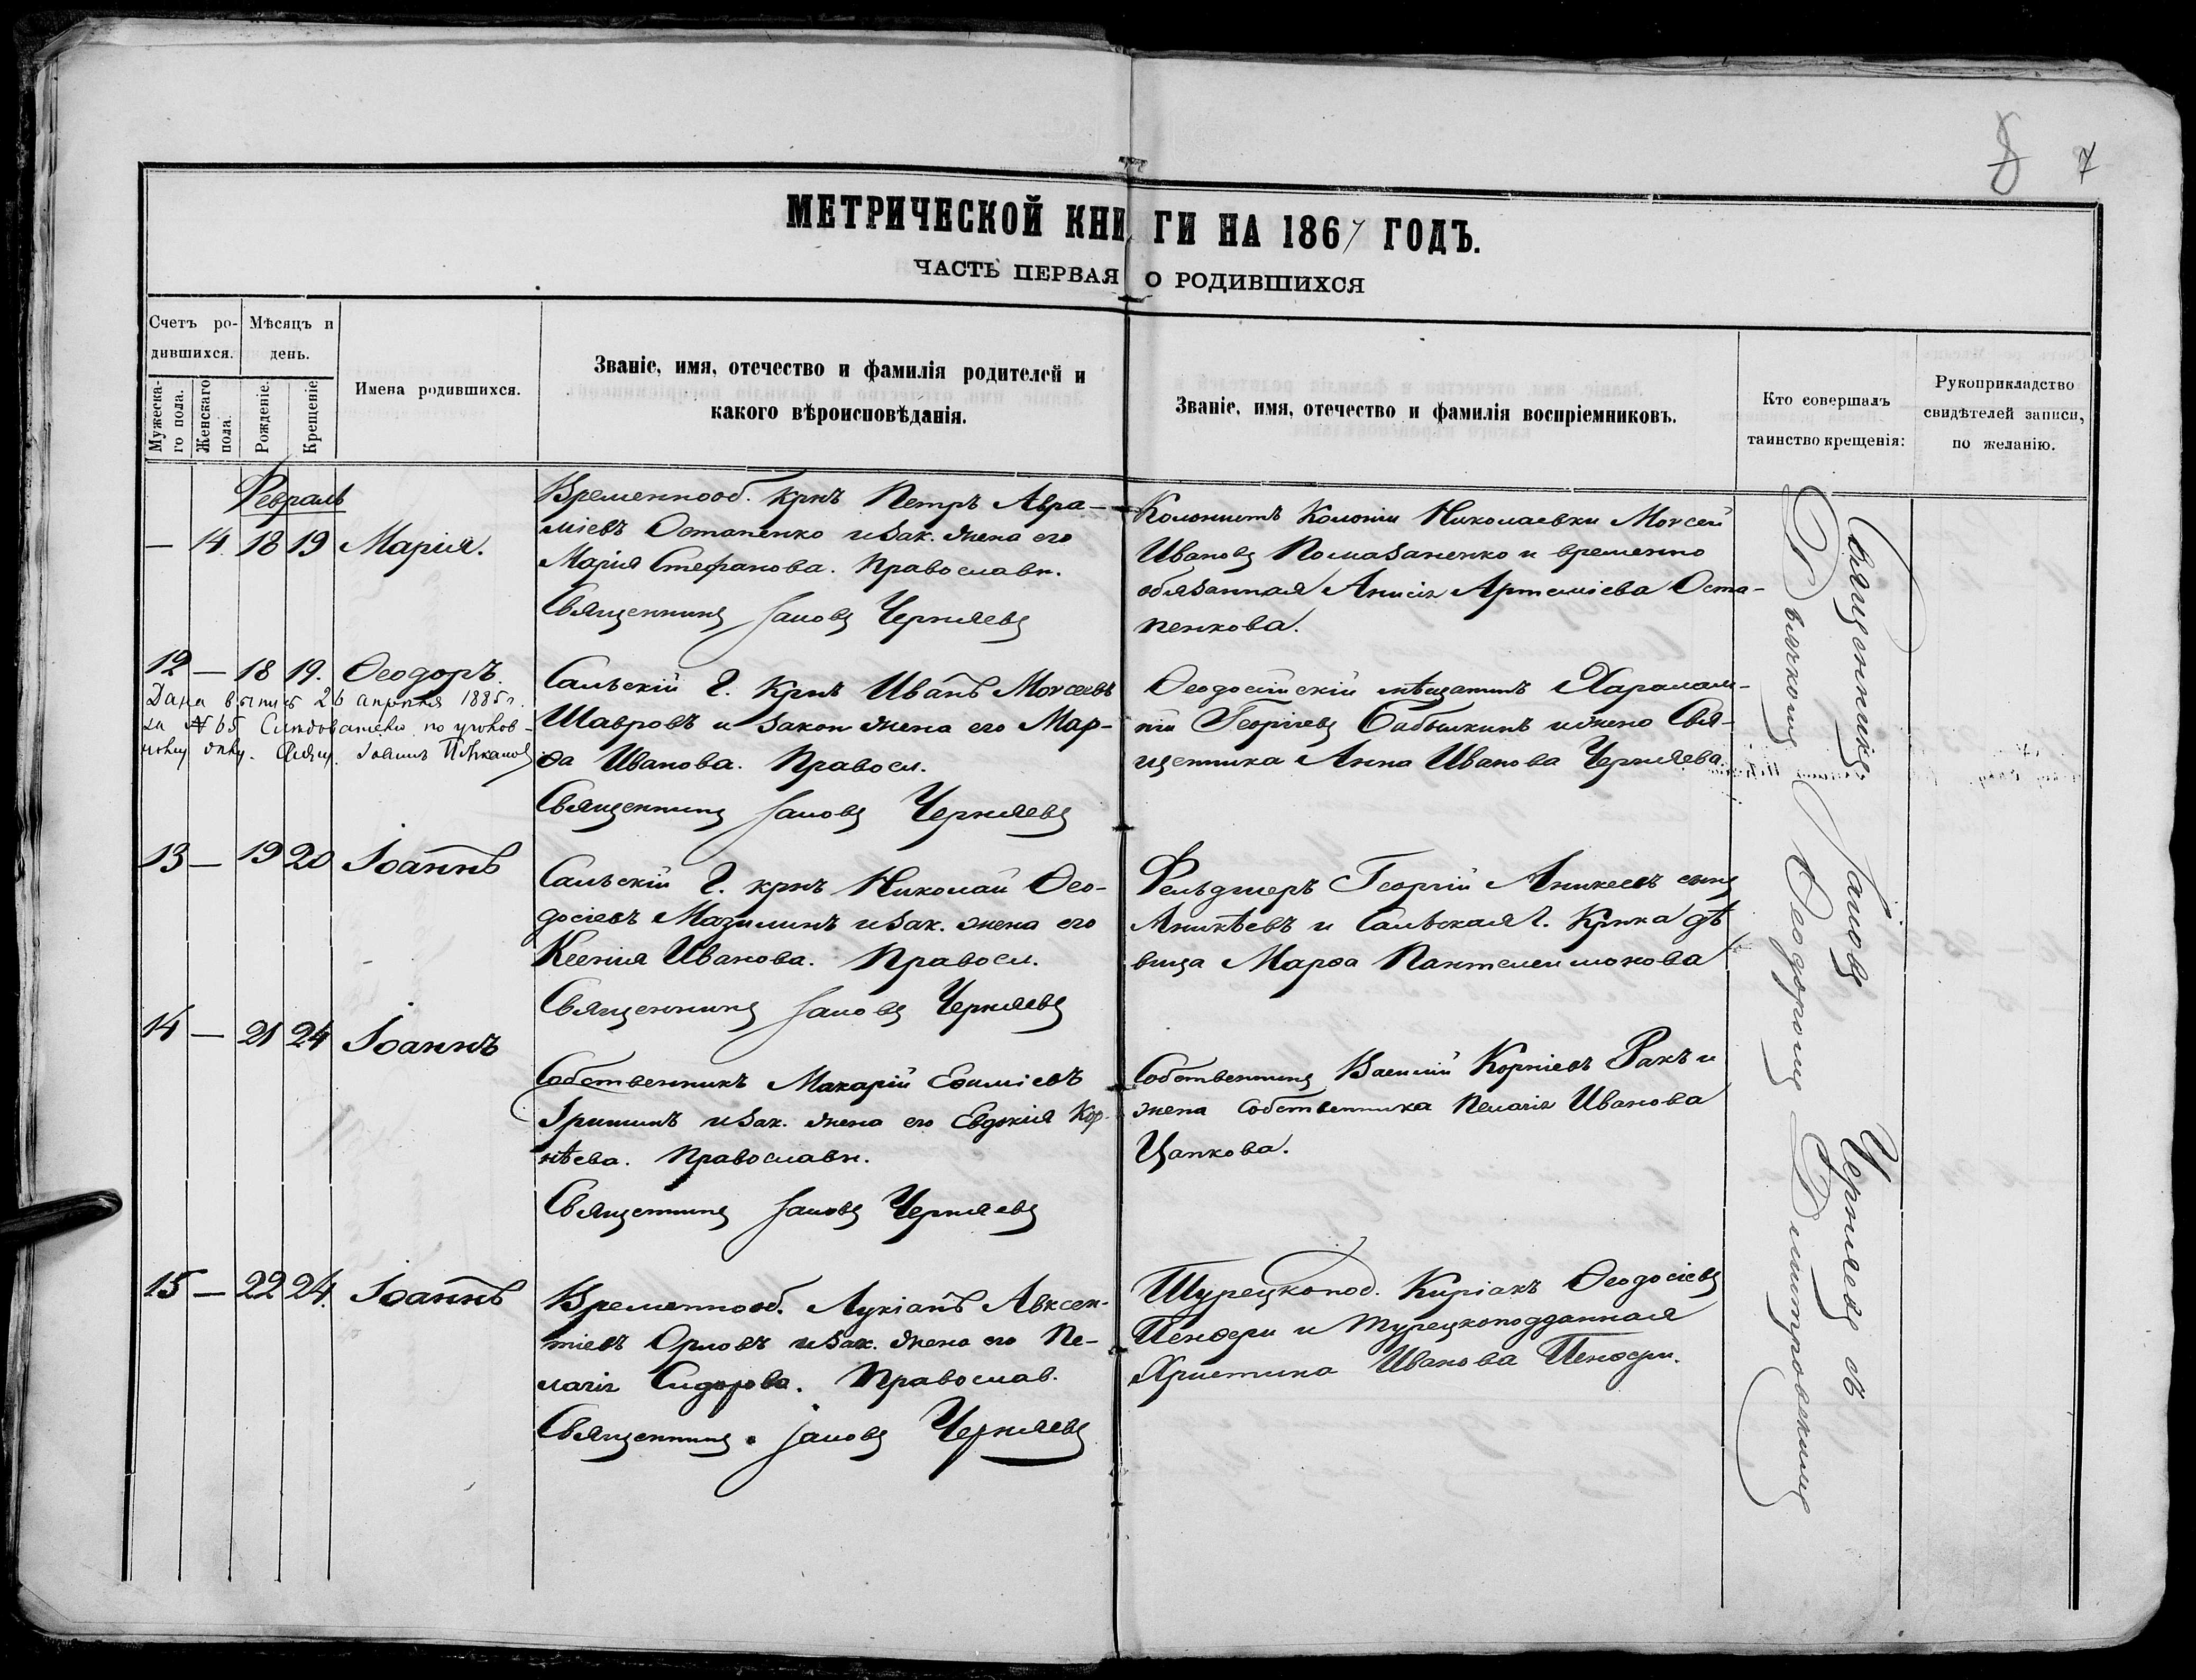 8 7
МЕТРИЧЕСКОЙ КНИГИ НА 1867 ГОДЪ.
ЧАСТЬ ПЕРВАЯ О РОДИВШИХСЯ
Счетъ ро-
дившихся.
Мужеска-
го пола.
Женскаго
пола.
Мѣсяцъ и
день.
Рожденіе.
Крещеніе
Имена родившихся.
Званіе, имя, отечество и фамилія родителей и
какого вѣроисповѣданія.
Званіе, имя, отечество и фамилія воспріемниковъ.
Кто совершалъ
таинство крещенія:
Рукоприкладство
свидѣтелей записи,
по желанію.
Февраль
— 14 18 19 Марія.
Временнооб. крнъ Петръ Авра-
міевъ Остапенко и зак. жена его
Марія Стефанова. Православн.
Священникъ Іаковъ Черняевъ
Колонистъ Колоніи Николаевки Моѵсей
Ивановъ Помазаненко и временно
обязанная Анисія Артеміева Оста-
пенкова.
12 — 18 19. Ѳеодоръ.
Дана выпись 26 апрѣля 1885 г.
за № 65
Свящ. Іоаннъ
Сальскій Г. Крнъ Иванъ Моѵсеевъ
Шавровъ и закон жена его Мар-
ѳа Иванова. Правосл.
Священникъ Іаковъ Черняевъ
Ѳеодосійскій мѣщанинъ Харалам-
пій Георгіевъ Бабышкинъ и жена Свя-
щенника Анна Иванова Черняева.
13 — 19 20 Іоаннъ
Сальскій Г. крнъ Николай Ѳео-
досіевъ Мазилинъ и зак. жена его
Ксенія Иванова. Правосл.
Священникъ Іаковъ Черняевъ
Фельдшеръ Георгій Аникеевъ сынъ
Аникѣевъ и Сальская Г. Крнка дѣ
вица Марѳа Пантелеимонова
14 — 21 24 Іоаннъ
Собственникъ Макарій Еѳиміевъ
Гришинъ и зак. жена его Евдокія Кор-
нѣева. Православн.
Священникъ Іаковъ Черняевъ
Собственникъ Василій Корніевъ Ракъ и
жена собственника Пелагія Иванова
Цапкова.
15 — 22 24. Іоаннъ
Временнооб. Лукіанъ Авксен-
тіевъ Орловъ и зак. жена его Пе-
лагія Сидорова. Православ.
Священникъ Іаковъ Черняевъ
Турецкопод. Киріакъ Ѳеодосіевъ
и турецкоподданная
Христина Иванова
Священникъ Іаковъ Черняевъ съ
Дьячкомъ Ѳеодоромъ Димитровскимъ